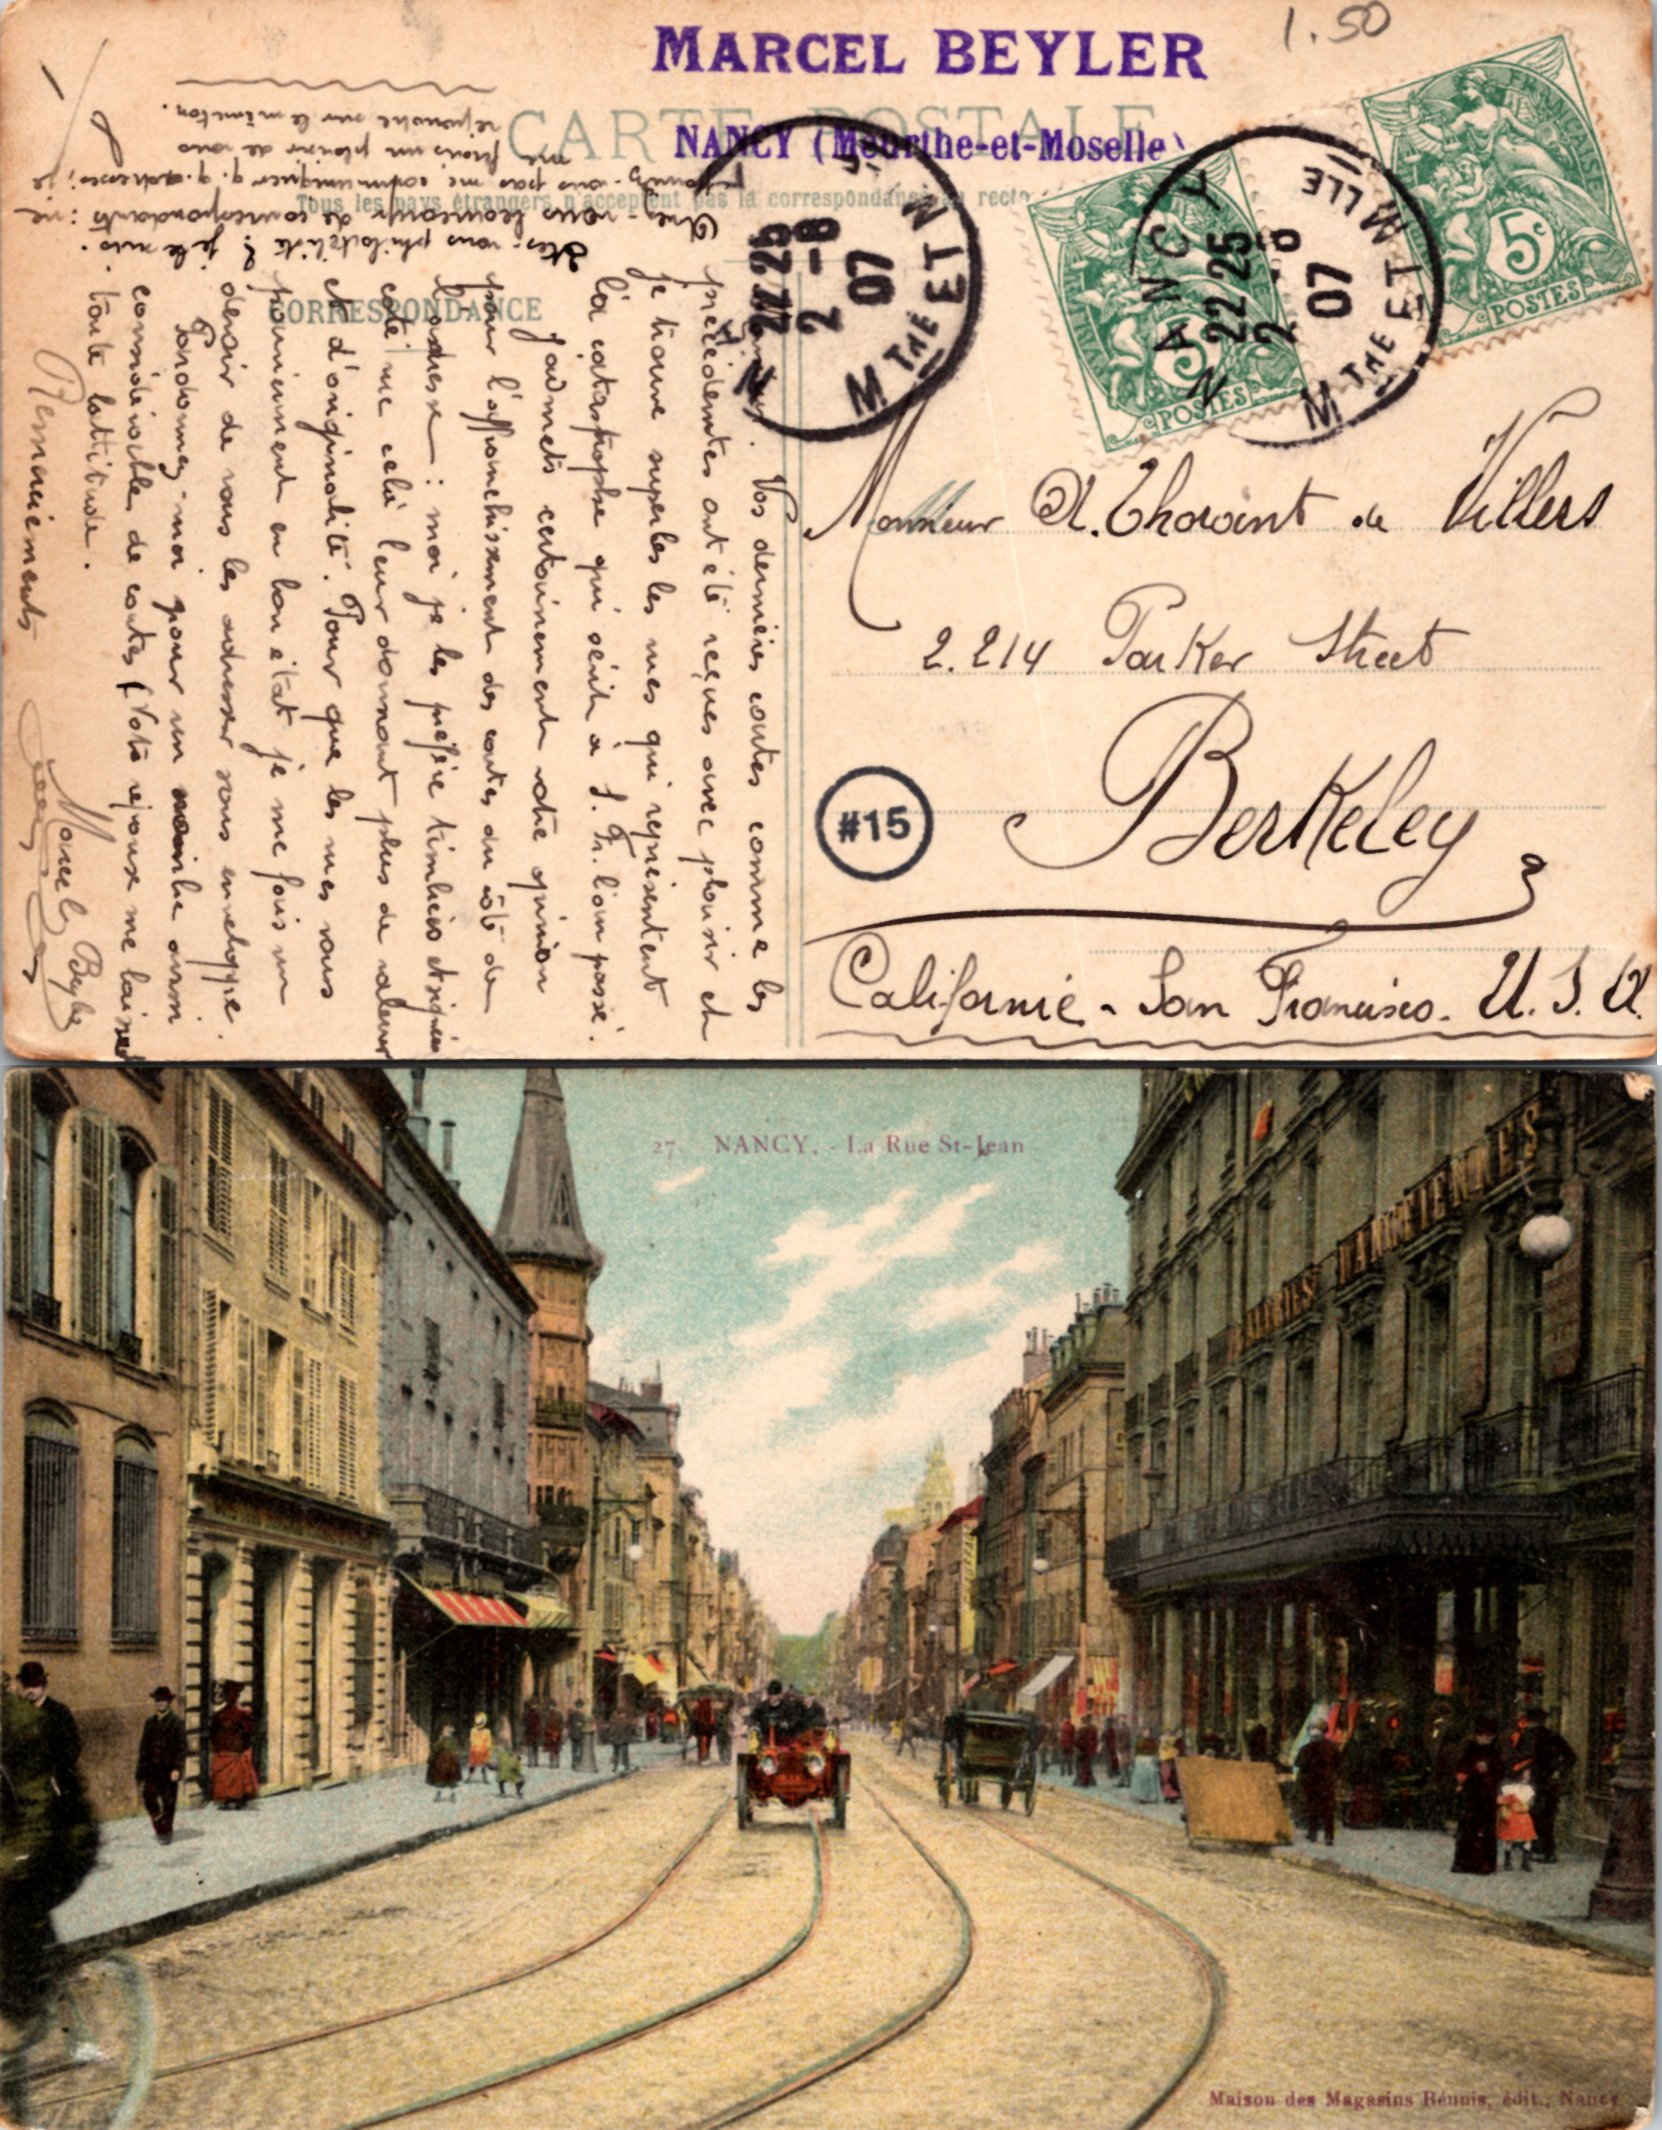 MARCEL BEYLER
1.50
CARTE POSTALE
NANCY (Meurthe-et-Moselle)
Tous les pays étrangers n'acceptent pas la correspondance au recto
CORRESPONDANCE
NANCY
22 25
2 - 8
07
MTHE ET MLLE
NANCY
22 25
2 - 8
07
MTHE ET MLLE
FRANÇAISE
5c
POSTES
5c
POSTES
Monsieur A. Thorint de Villers
2.214 Parker Street
Berkeley
Californie - San Francisco. U.S.A.
#15
Vos dernières cartes comme les
précédentes ont été reçues avec plaisir et
je trouve superbes les vues qui représentent
la catastrophe qui sévit à S. Fr. l'an passé.
J'admets certainement votre opinion
pour l'affranchissement des cartes du côté de
l'adresse : moi je les préfère timbrées
côté vue celà leur donnant plus de valeur
et d'originalité. Pour que les vues vous
parviennent en bon état je me fais un
devoir de vous les adresser sous enveloppe.
Pardonnez-moi pour un nombre aussi
considérable de cartes
toute latitude.
Remerciements
Marcel Beyler
Etes-vous philatéliste ? je le suis.
Avez-vous beaucoup de correspondants : ne
pourriez-vous pas me communiquer q.q. adresses; je
me ferais un plaisir de vous
répondre sur le même ton.
27. NANCY. - La Rue St-Jean
GALERIES NANCEIENNES
Maison des Magasins Réunis, édit., Nancy